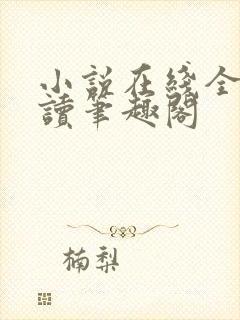 小說在綫全
讀筆趣閣
楠梨